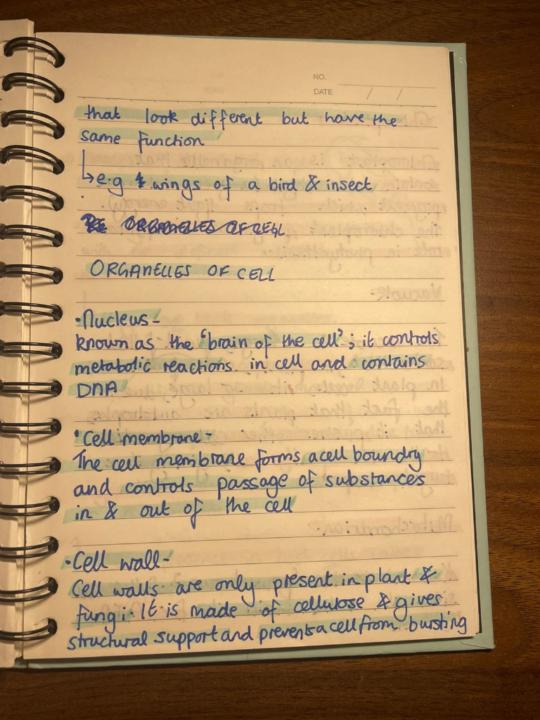 NO.
DATE / /
that look different but have the
same function
↳e.g wings of a bird & insect
ORGANELLES OF CELL
ORGANELLES OF CELL
•Nucleus-
known as the 'brain of the cell'; it controls
metabolic reactions in cell and contains
DNA
•Cell membrane-
The cell membrane forms a cell boundry
and controls passage of substances
in & out of the cell
•Cell wall-
Cell walls are only present in plant &
fungi. It is made of cellulose & gives
structural support and prevents a cell from bursting